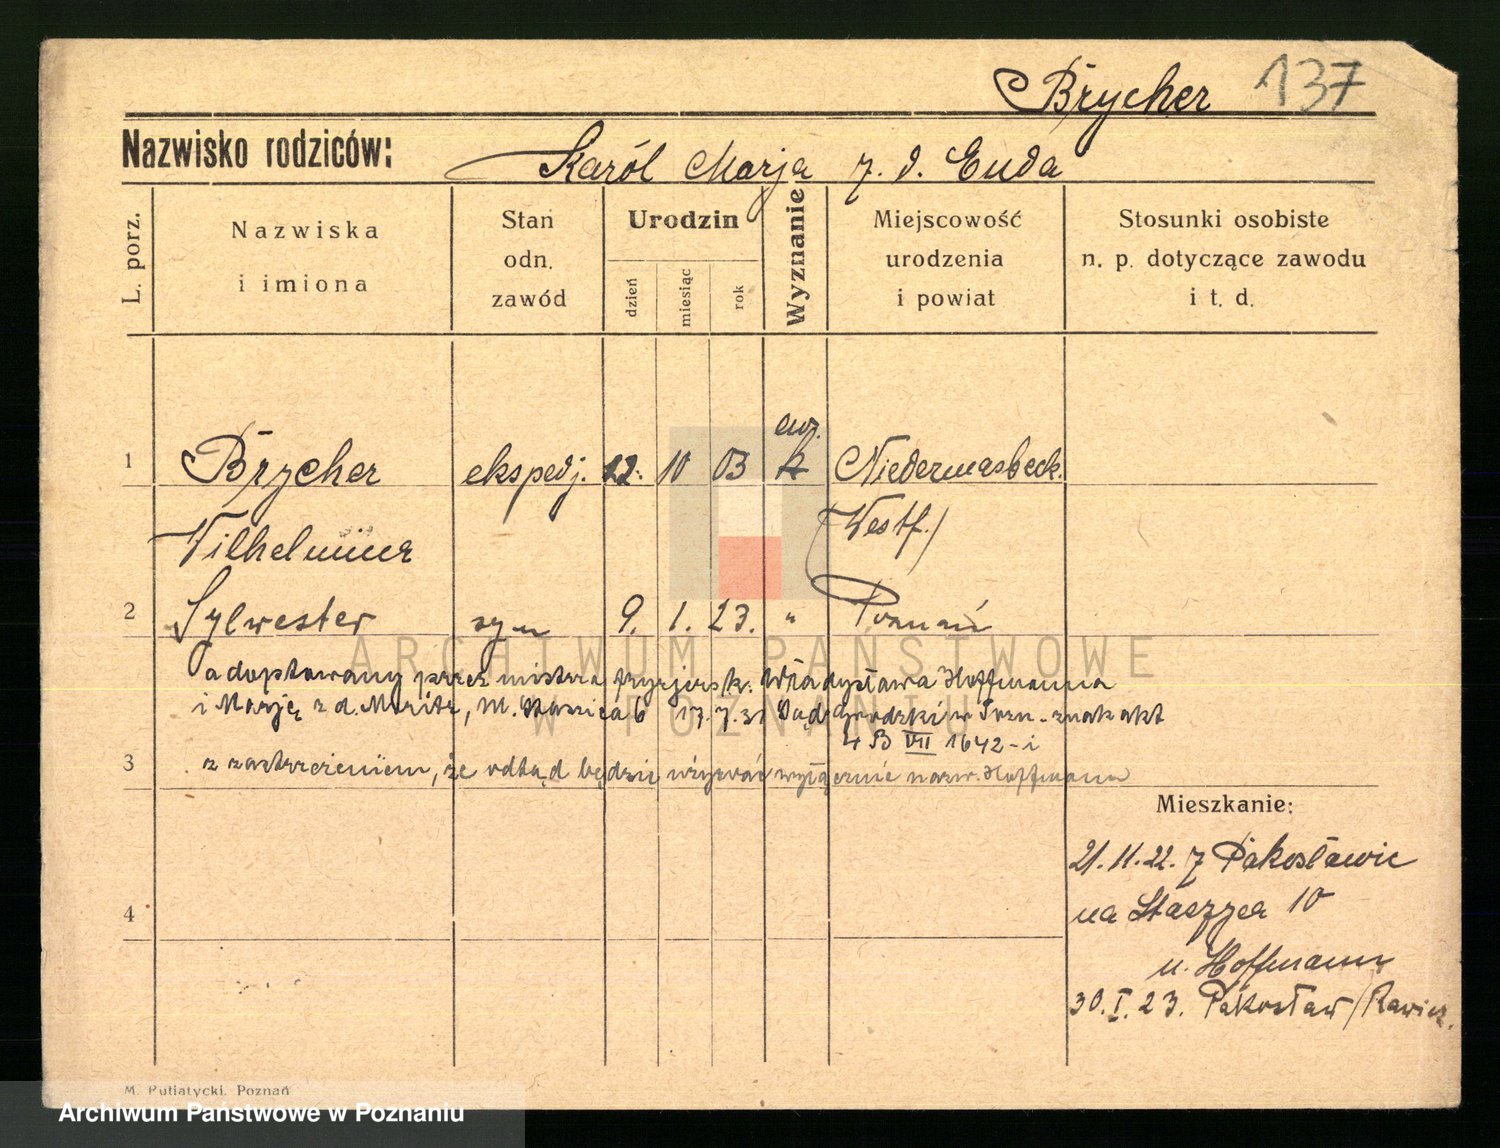 Brycher 137
Nazwisko rodziców: Karól Marja z. d. Euda
L. porz.
Nazwiska i imiona
Stan odn. zawód
Urodzin
dzień
miesiąc
rok
Wyznanie
Miejscowość urodzenia i powiat
Stosunki osobiste n. p. dotyczące zawodu i t. d.
ew.
1 Brycher ekspedj. 12. 10 03 k Niedermasbeck.
Wilhelmina (Westf.)
2 Sylwester syn 9. 1. 23. " Poznań
adoptowany przez mistrza fryzjersk. Władysława Hoffmanna
i Marję z d. Moritz, M. Staszica 6 17.7.31 Sąd Grodzki w Pozn. - znak akt
4 B VII 1642 - i
3 z zastrzeżeniem, że odtąd będzie używać wyłącznie nazw. Hoffmann
Mieszkanie:
21.11.22. z Pakosławic
4 na Staszyca 10
u. Hoffmann
30.I.23. Pakosław / Rawicz.
M. Putiatycki, Poznań
ARCHIWUM PAŃSTWOWE
W POZNANIU
Archiwum Państwowe w Poznaniu